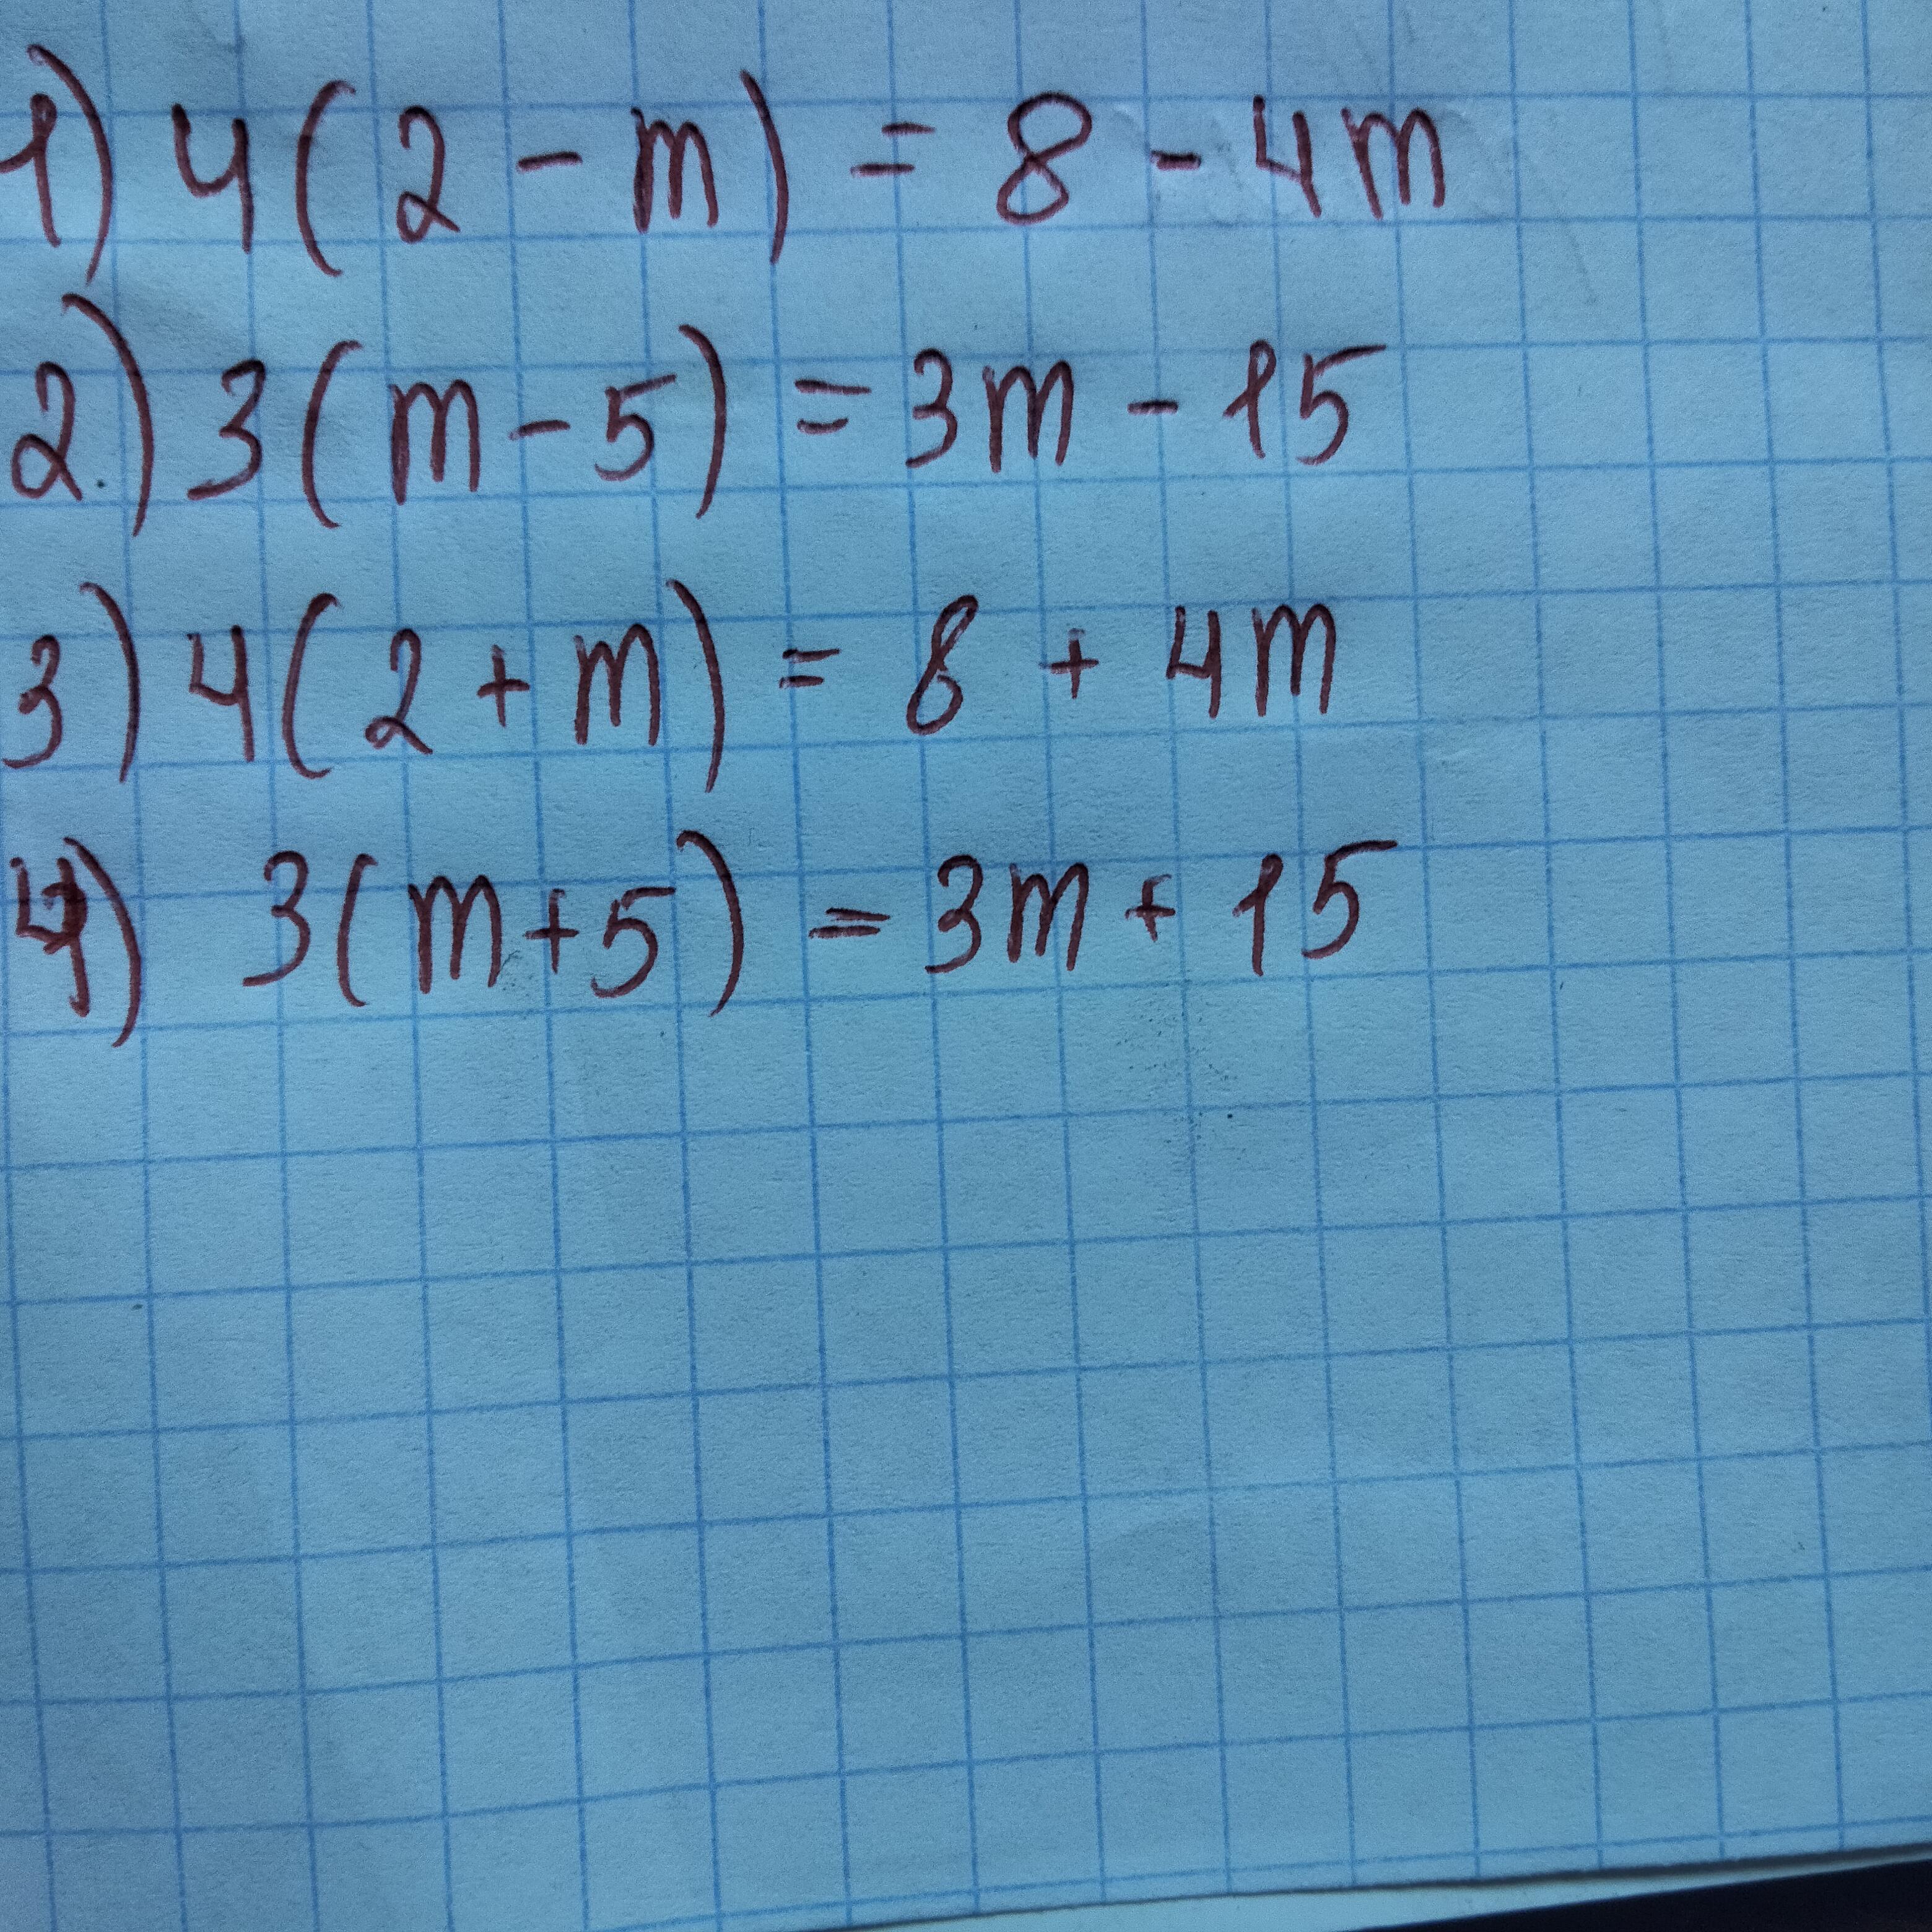 1) 4(2 - m) = 8 - 4m
2.) 3(m - 5) = 3m - 15
3) 4(2 + m) = 8 + 4m
4) 3(m + 5) = 3m + 15